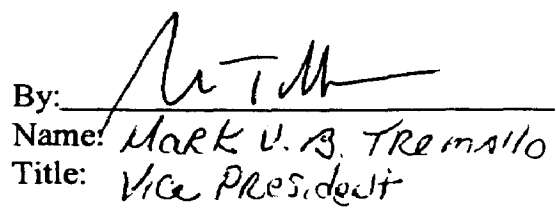 By:
Name: Mark V. B. Tremallo
Title: Vice President